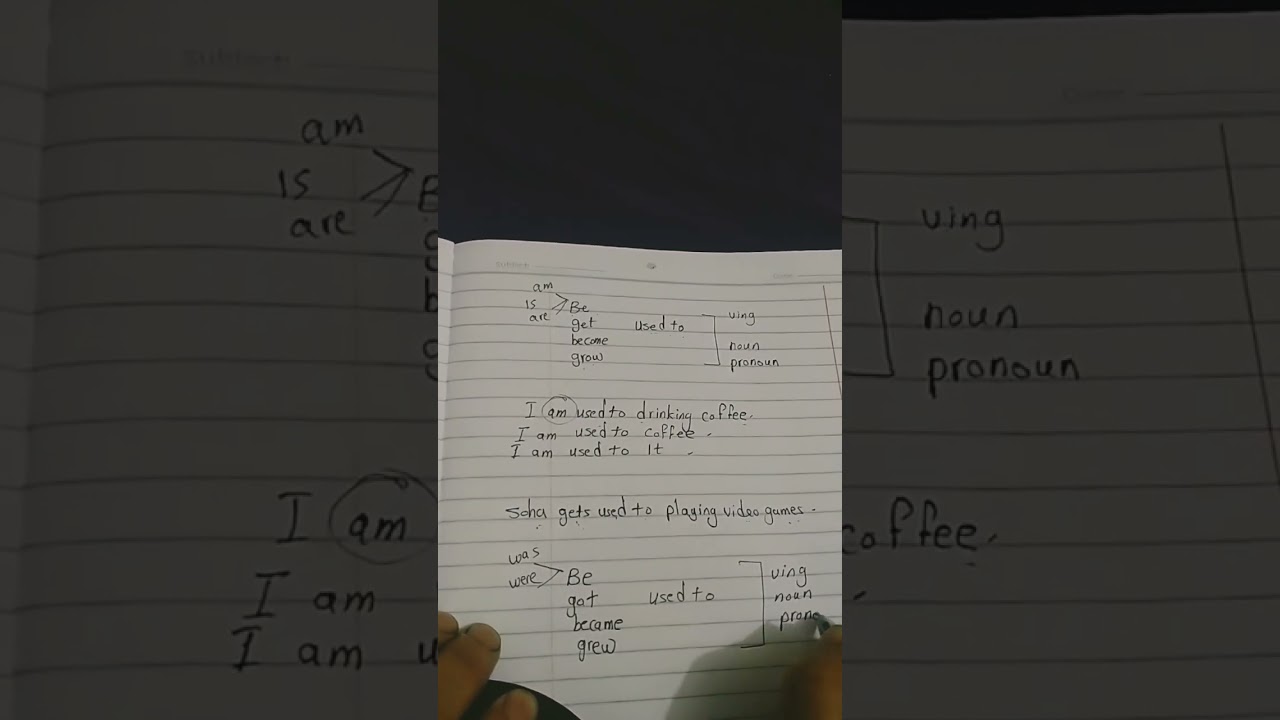 am
is
are
Be
get
become
grow
used to
ving
noun
pronoun
I am used to drinking coffee.
I am used to coffee.
I am used to It.
Soha gets used to playing video games.
was
were
Be
got
became
grew
used to
ving
noun
pron